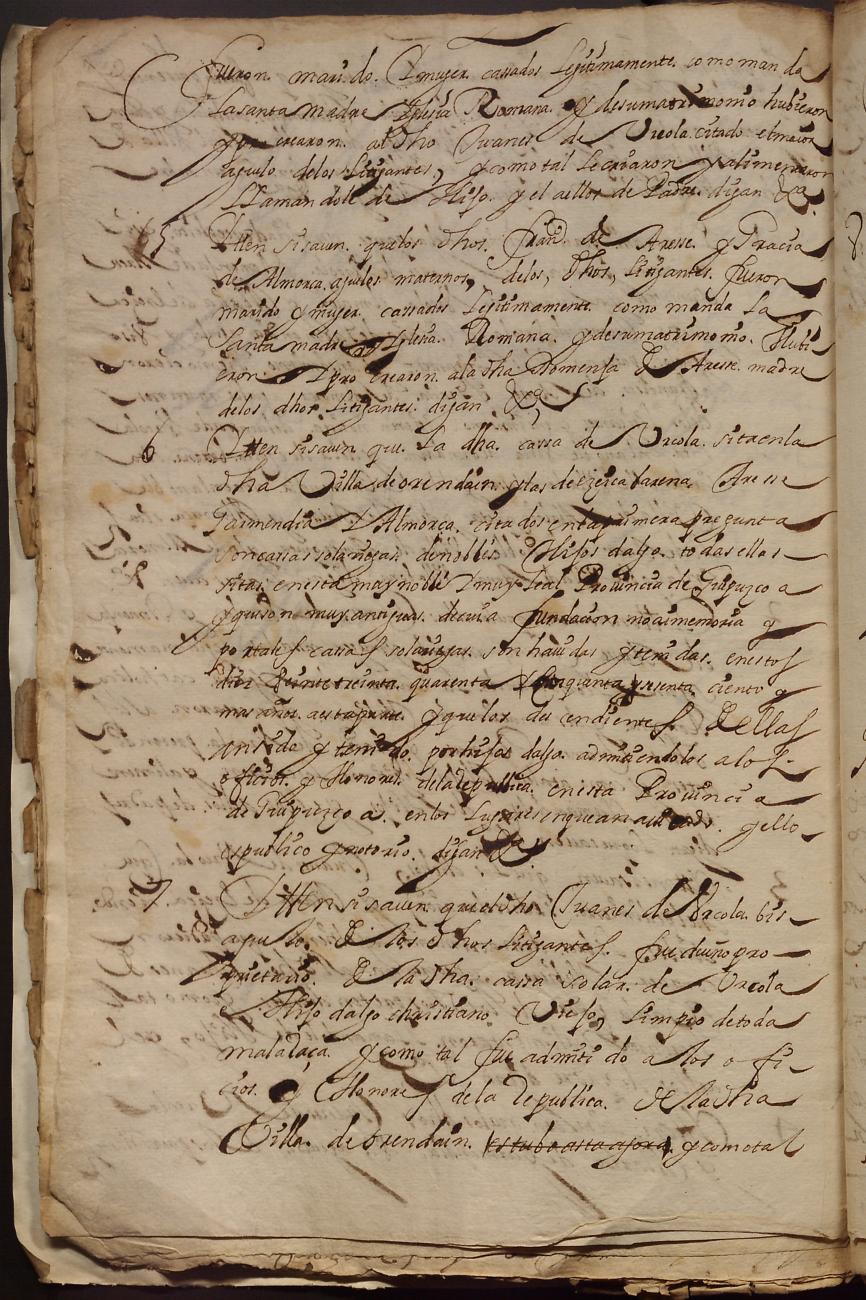 fueron marido Y mujer cassados Lejitimamente como manda
La santa madre Iglesia Romana y de su matrimonio hubieron
y crearon al dho Juanes de Vrcola citado el maior
aguelo de los Litigantes, y como tal le criaron y alimentaron
LLamandole de Hijo y el a ellos de Padre digan &a
5 Itten si sauen que los dhos fran.co de Aresse y Gracia
de Almorca aguelos maternos, de los, dhos, Litigantes fueron
marido y mujer cassados Lejitimamente como manda La
Santa madre Iglesia Romana y de su matrimonio Hubi
eron Y procrearon a la dha Domenja de Aresse madre
de los dhos Litigantes digan &a
6 Itten si sauen que La dha cassa de Vrcola sita en la
dha Villa de orendain y las de ezeica barena Aresse
Garmendia Y Almorca citados en la primera pregunta
son casas solariegas de nobles Hijos dalgo todas ellas
sitas en esta muy noble Y muy Leal Prouincia de Guipuzcoa
y que son muy antiguas de cuia fundacion no ai memoria y
por tales cassas solariegas son hauidas y tenidas en estos
diez Veinte treinta quarenta Y cinquanta y sesenta ciento y
mas años a esta parte y que los descendientes de ellas
an sido y tenido por hijos dalgo admitiendolos a los
oficios y Honores de la Republica en esta Prouincia
de Guipuzcoa en los Lugares en que an auitado y ello
es publico y notorio digan &a
7 Itten si sauen que el dho Juanes de Vrcola bis
aguelo de los dhos Litigantes fue dueño pro
prietario de la dha cassa solar de Vrcola
e Hijo dalgo christiano Viejo, Limpio de toda
mala raça y como tal fue admitido a los ofi
cios y Honores de la Republica de la dha
Villa de orendain estubo asta agora y como tal